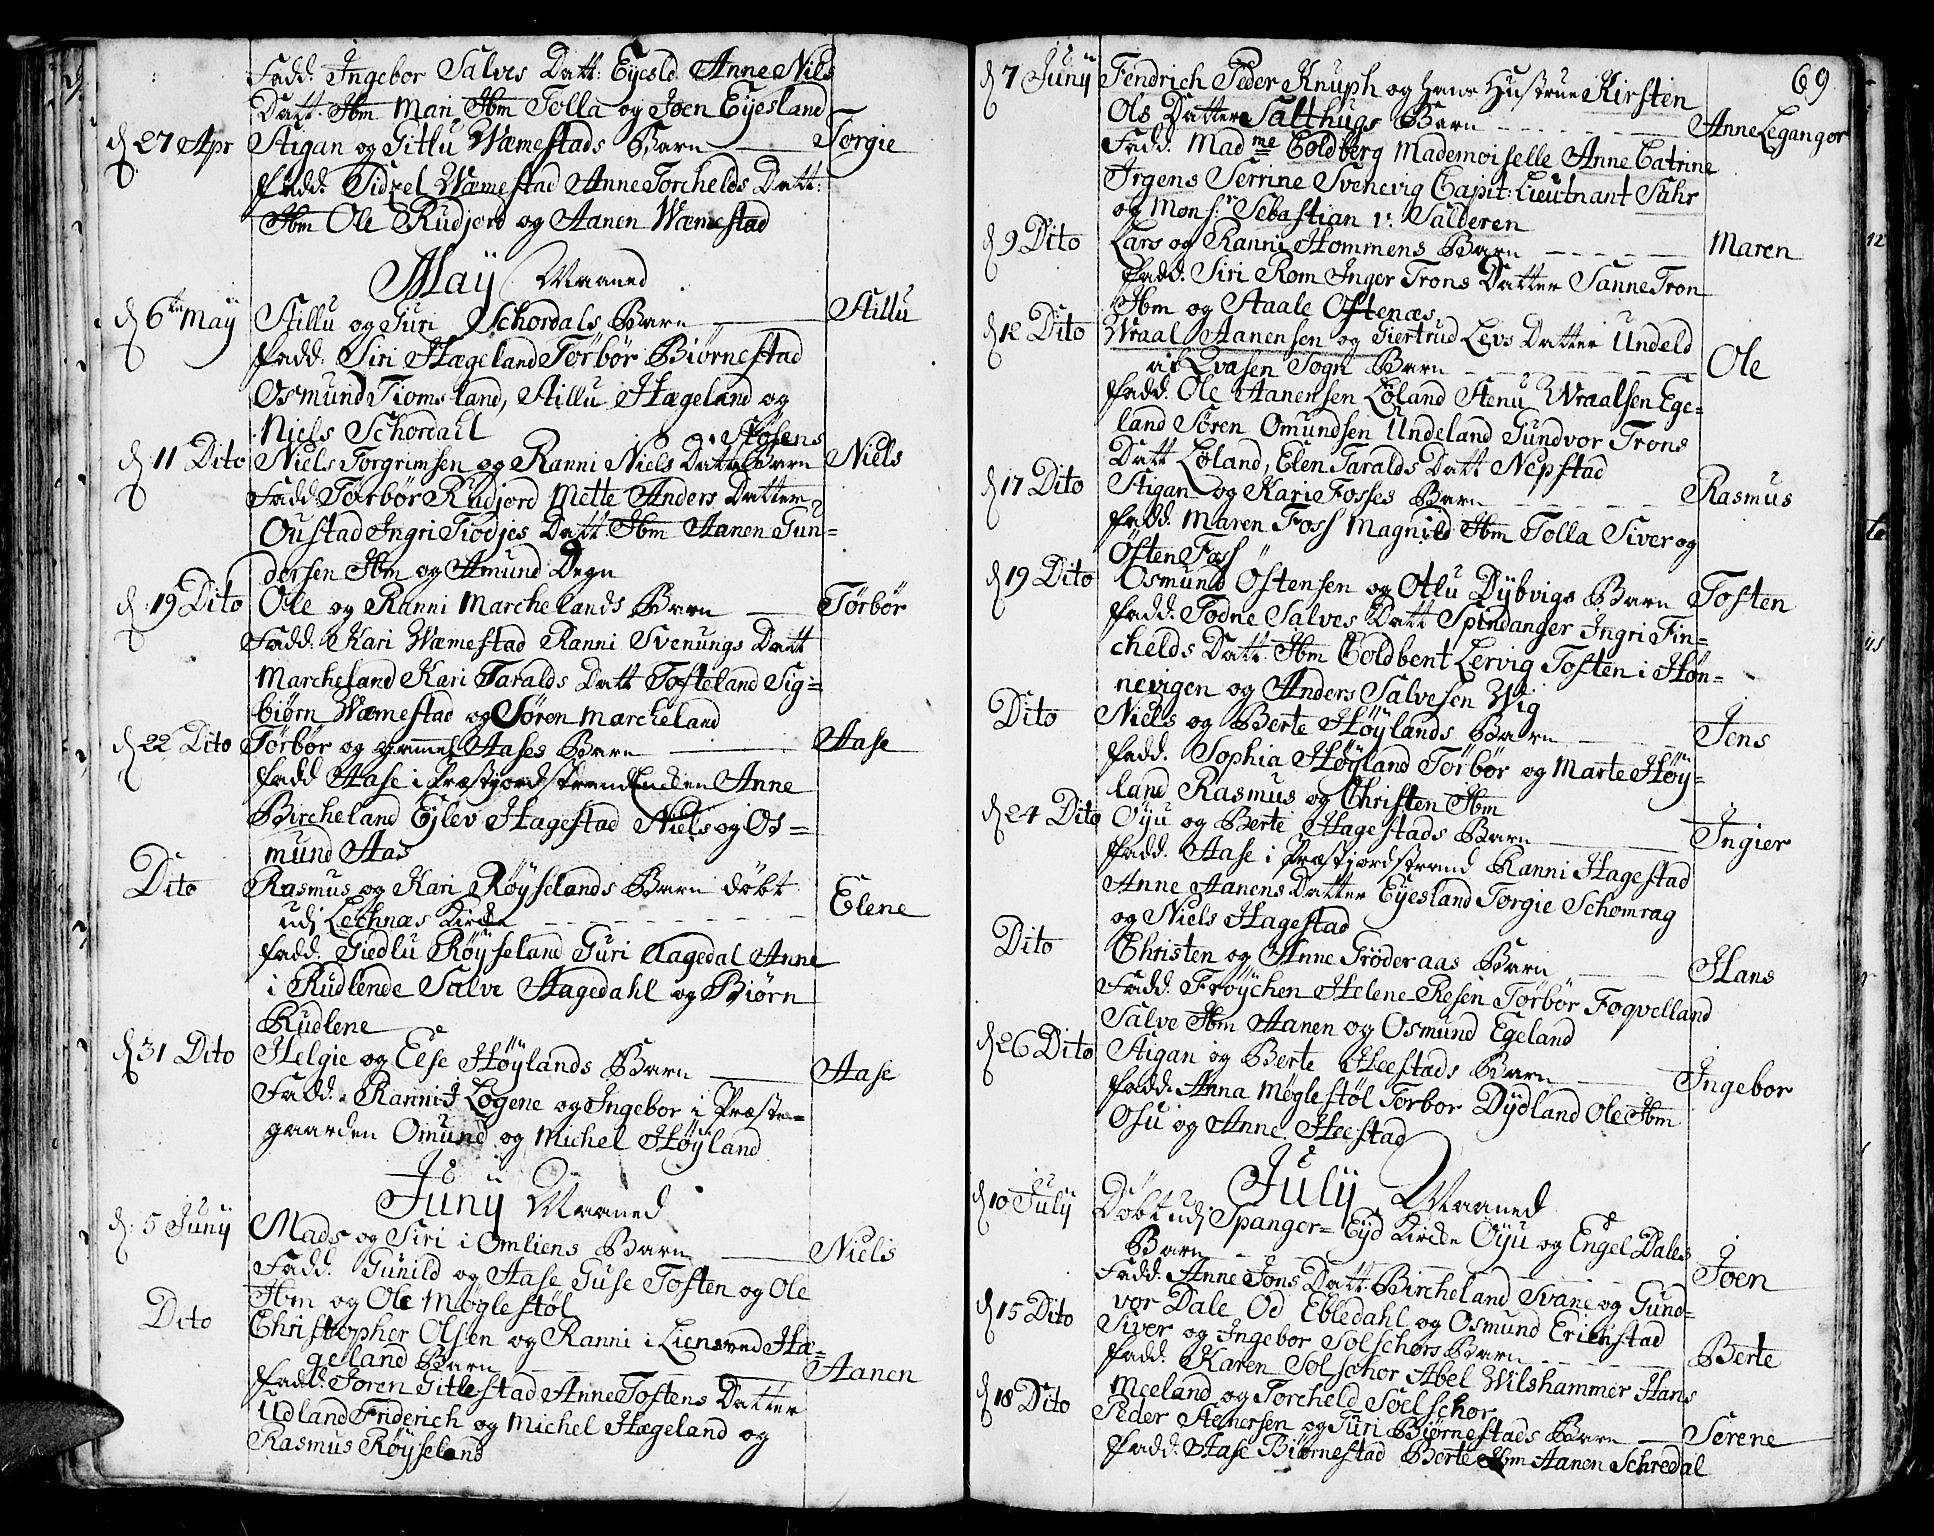 Fadd. Ingebor Salves Datt: Eyesld Anne Niels
Datt. Ibm Mari Ibm Tolla og Joen Eyesland
d 27 Apr Stigan og Gitlu Wæmestads Barn — Torgie
Fadd. Sidzel Wæmestad Anne Torchelds Datt:
Ibm Ole Rudjord og Aanen Wæmestad
Maÿ Maaned
d 6te Maÿ Stillu og Guri Schordals Barn — Stillu
Fadd: Siri Hægeland Torbør Biørnestad
Osmund Tiomsland, Stillu Hægeland og
Niels Schordahl
d. 11 Dito Niels Torgrimsen og Ranni Niels Datt Støsens Barn Niels
Fadd: Torbør Rudjord Mette Anders Datter
Oustad Ingri Tiodjes Datt. Ibm Aanen Gun=
dersen Ibm og Amund Degn
d. 19 Dito Ole og Ranni Marchelands Barn — Torbør
Fadd. Kari Wæmestad Ranni Svenungs Datt
Marcheland Kari Taralds Datt Tofteland Sig=
biørn Wæmestad og Søren Marcheland
d 22 Dito Torbør og gamel Aases Barn — Aase
Fadd Aase i Præstjordstranden Anne
Bircheland Ejlev Hagestad Niels og Os=
mund Aas
Dito Rasmus og Kari Røyselands Barn døbt
udj Lechnæs Kirche — Elene
Fadd. Giedlu Røyseland Guri Aagedal Anne
i Rudlende Salve Aagedahl og Biørn
Rudlene
d 31 Dito Helgie og Else Høylands Barn — Aase
Fadd. Ranni I Logene og Ingebor i Præste=
gaarden Omund og Michel Høyland
Junÿ Maaned
d: 5 Junÿ Mads og Siri i Omliens Barn — Niels
Fadd. Gunild og Aase Guse Tosten og Ole
Ibm og Ole Møglestøl
Dito Christopher Olsen og Ranni i Liensved Hæ=
geland Barn — Aanen
Fadd. Joren Gitlestad Anne Tostens Datter
Udland Friderich og Michel Hægeland og
Rasmus Røyseland
69
d 7 Junÿ Fendrich Peder Knuph og hans Hustrue Kirsten
Ols Datter Salthugs Barn — Anne Leganger
Fadd. Madme Coldberg Mademoiselle Anne Catrine
Irgens Serrine Svenevig Capit: Lieutnant Suhr
og Mons:r Sebastian v: Salderen
d 9 Dito Lars og Ranni Hommens Barn — Maren
Fadd. Siri Rom Inger Trons Datter Sanne Tron
Ibm og Staale Ostenæs
d 12 Dito Wraal Aanensen og Giertrud Levs Datter Undeld
at Qvasen Sogn Barn — Ole
Fadd. Ole Aanensen Løland Stenu Wraalsen Ege=
land Søren Omundsen Undeland Gundvor Trons
Datt Løland, Elen Taralds Datt Nepstad
d 17 Dito Stigan og Karie Fosses Barn — Rasmus
Fadd. Maren Foss Magnild Ibm Tolla Siver og
Østen Foss
d 19 Dito Osmund Østensen og Otlu Dybvigs Barn Tosten
Fadd. Todne Salves Datt Spindanger Ingri Fin=
chelds Datt. Ibm Coldbent Lervig Tosten i Høn=
nevigen og Anders Salvesen Wig
Dito Niels og Berte Høylands Barn — Jens
Fadd. Sophia Høyland Torbør og Marte Høy=
land Rasmus og Christen Ibm
d 24 Dito Oyu og Berte Hagestads Barn — Ingier
Fadd. Aase i Præstjordstrand Ranni Hagestad
Anne Aanens Datter Eyesland Torgie Schomrag
og Niels Hagestad
Dito Christen og Anne Grøderaas Barn — Hans
Fadd. Frøychen Helene Resen Torbør Foqvelland
Salve Ibm Aanen og Osmund Egeland
d 26 Dito Stigan og Berte Heestads Barn — Ingebor
Fadd. Anna Møglestøl Torbor Dydland Ole Ibm
Osu og Anne Heestad
Julÿ Maaned
d 10 Julÿ Døbt udj Spanger=Eyd Kirche Oyu og Engel Dales
Barn — Joen
Fadd. Anne Jons Datt. Bircheland Svane og Gund=
vor Dale Od Ebledahl og Osmund Erichstad
d 15 Dito Siver og Ingebor Solschors Barn — Berte
Fadd. Karen Solschor Abel Wilshammer Hans
Meeland og Torcheld Soelschor
d 18 Dito Peder Stenersen og Guri Biørnestads Barn — Serene
Fadd. Aase Biørnestad Berte Ibm Aanen Schredal